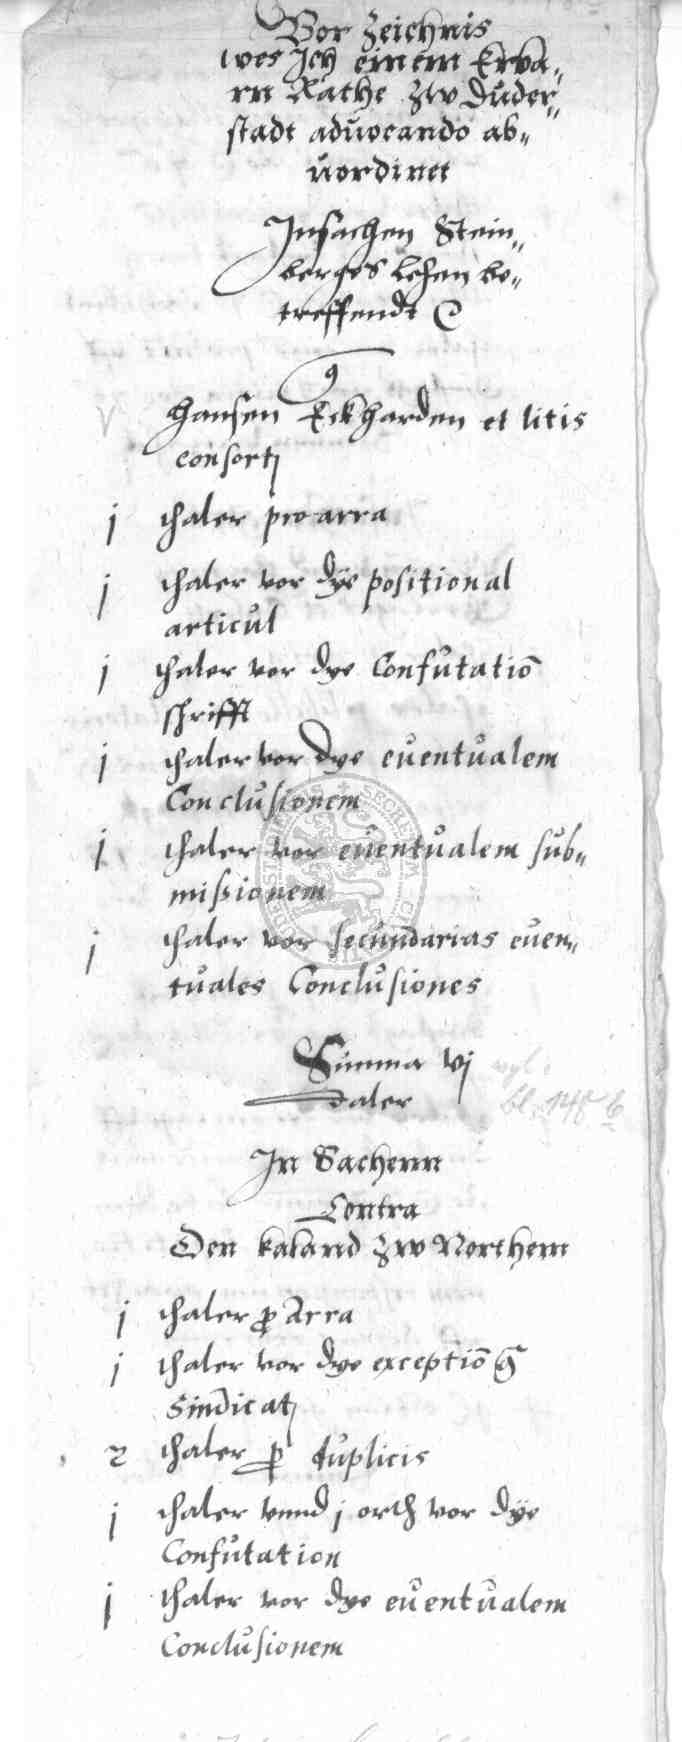 Vor Zeichnis
wes Jch einem Erba„
rn Rathe Zw Duder„
stadt aduocando ab„
uordinet
Jnsachen Stein„
berges lehen be„
treffendt
Hansen Eckharden et litis
consortj
j thaler pro arra
j thaler vor dÿe positional
articul
j thaler vor dye Confutatiō
schrifft
j thaler vor dye euentualem
Conclusionem
j thaler vor euentualem sub„
missionem
j thaler vor secundarias euen„
tuales Conclusiones
Summa vj
daler
Jn Sachenn
Contra
Den kaland Zw Northem
j thaler p Arra
j thaler vor dye exceptiō
Sindicatj
2 thaler p duplicis
j thaler vnnd j orth vor dÿe
Confutation
j thaler vor dye euentualem
Conclusionem